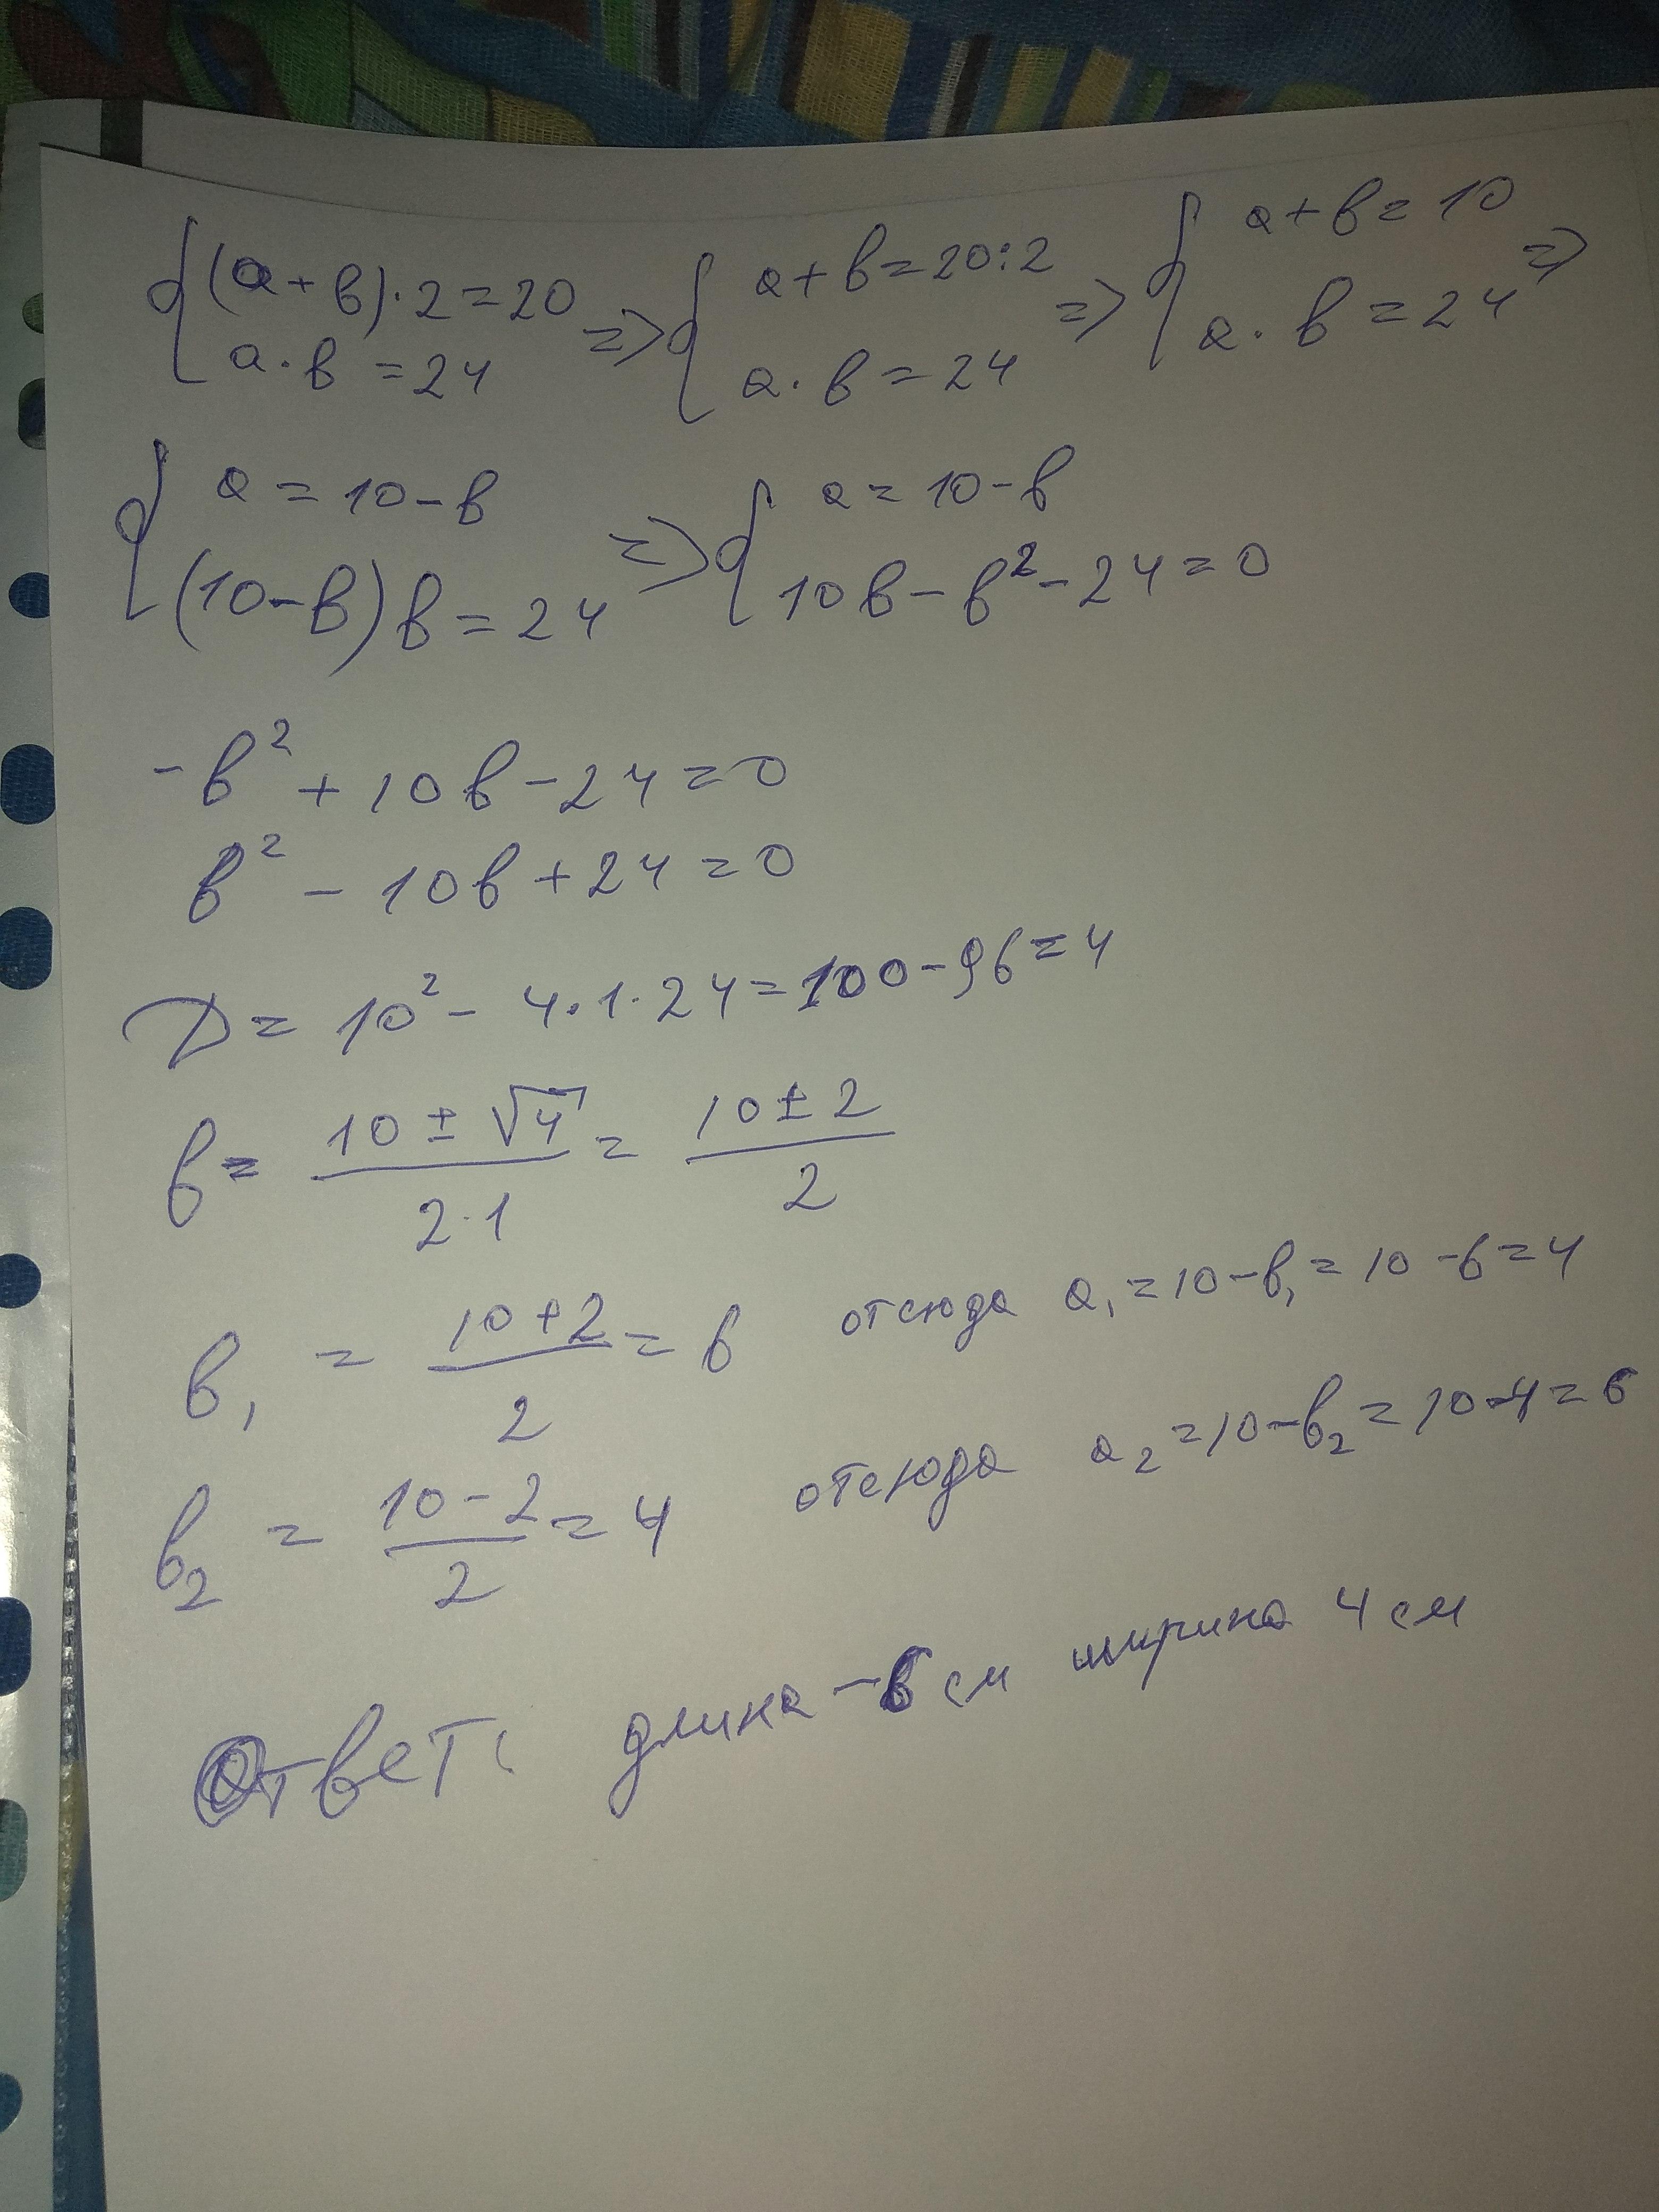 {(a+в)·2=20 => {a+в=20:2 => {a+в=10 =>
a·в=24 a·в=24 a·в=24
{a=10-в => {a=10-в
(10-в)в=24 10в-в²-24=0
-в²+10в-24=0
в²-10в+24=0
D=10²-4·1·24=100-96=4
в=(10±√4)/(2·1)=(10±2)/2
в₁=(10+2)/2=6 отсюда a₁=10-в₁=10-6=4
в₂=(10-2)/2=4 отсюда a₂=10-в₂=10-4=6
Ответ: длина-6 см ширина 4 см